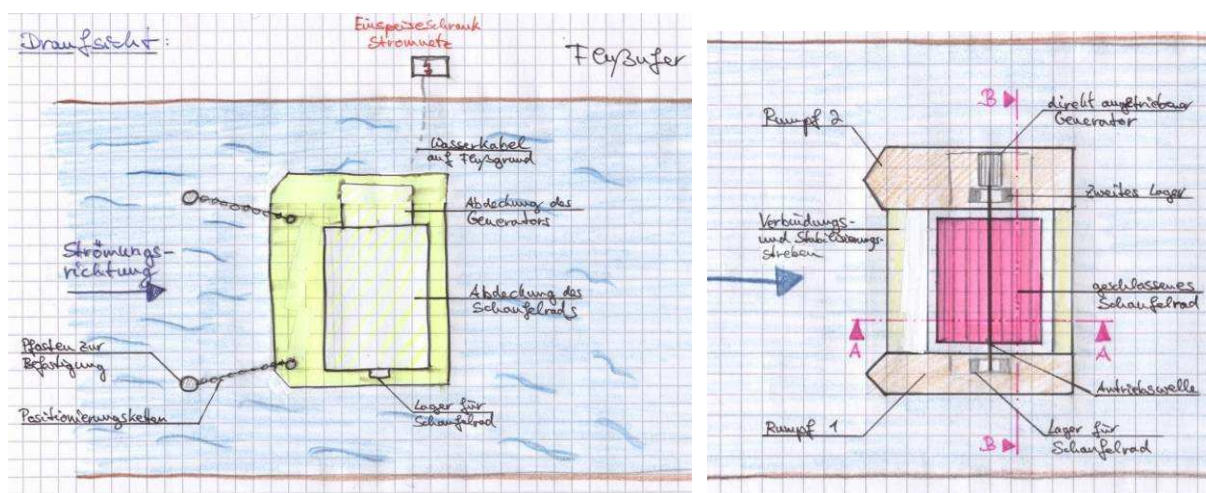 Draufsicht:
Einspeiseschrank
Stromnetz
Flußufer
Wasserkabel
auf Flußgrund
Abdeckung des
Generators
Strömungs-
richtung
Abdeckung des
Schaufelrads
Pfosten zur
Befestigung
Positionierungsketten
Lager für
Schaufelrad
B
direkt angetriebener
Generator
Rumpf 2
zweites Lager
Verbindungs-
und Stabilisierungs-
streben
geschlossenes
Schaufelrad
A
A
Antriebswelle
Rumpf 1
B
Lager für
Schaufelrad